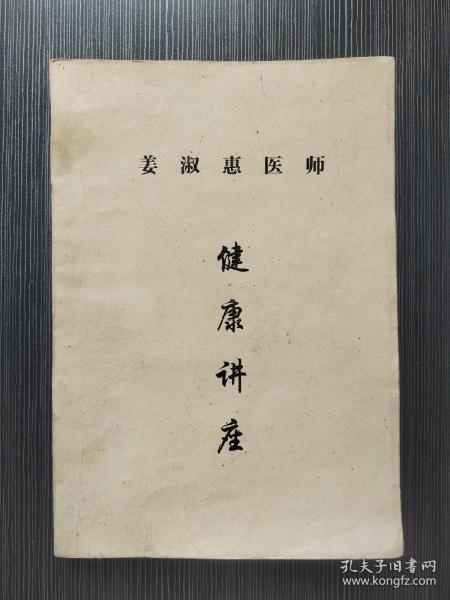 姜淑惠医师
健康讲座
孔夫子旧书网
www.kongfz.com